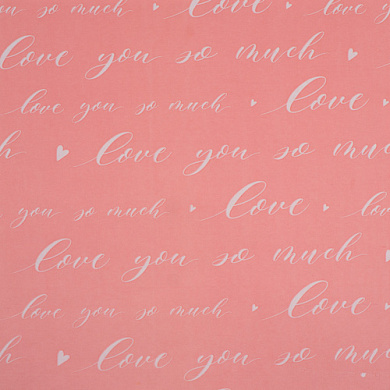 love you so much
love you so much love
h love you so much
you so much love lov
love you so much
love you so much love
h love you so much